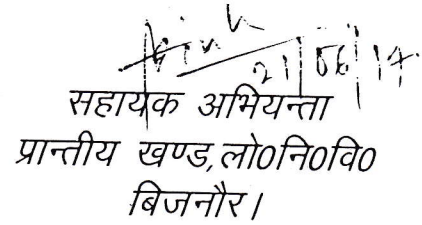 21/06/14
सहायक अभियन्ता
प्रान्तीय खण्ड,लो0नि0वि0
बिजनौर।